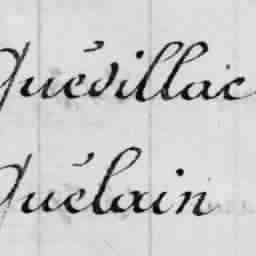 Quévillac
Quélain